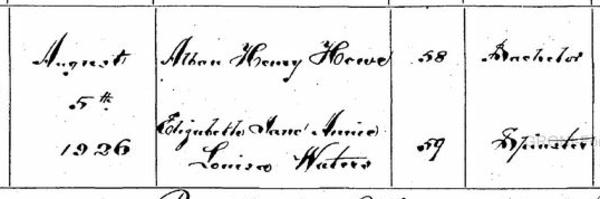 August Alban Henry Howe 58 Bachelor
5th
Elizabeth Jane Annie
1926 Louisa Waters 59 Spinster